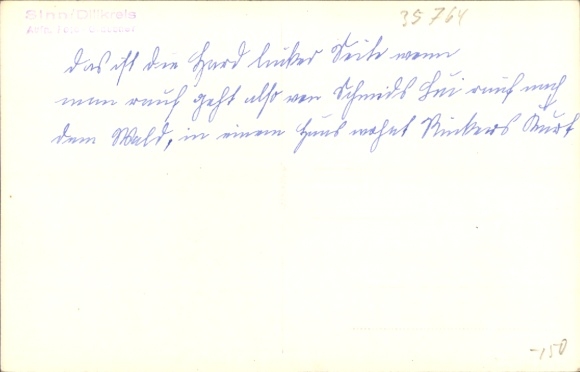 Sinn/Dillkreis
35764
das ist die Hard linker Seite wenn
man rauf geht also von Schmids Lui rauf nach
dem Wald, in einem Haus wohnt Rinkers Kurt
-150